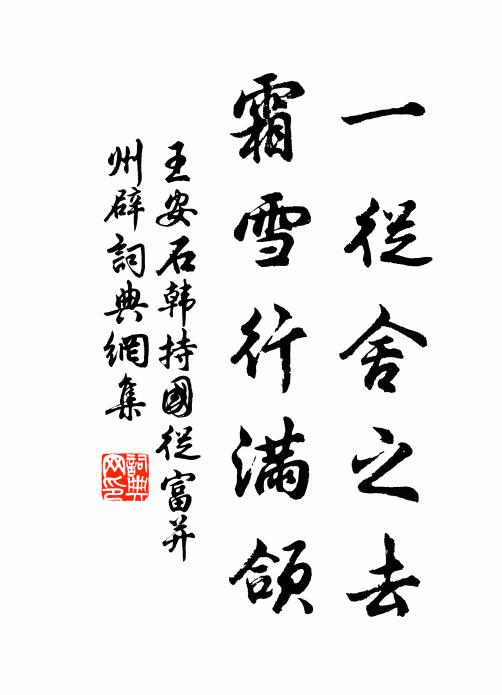 一從舍之去
霜雪行滿頜
王安石韩持國從富并
州辟詞典網集
詞典
网印